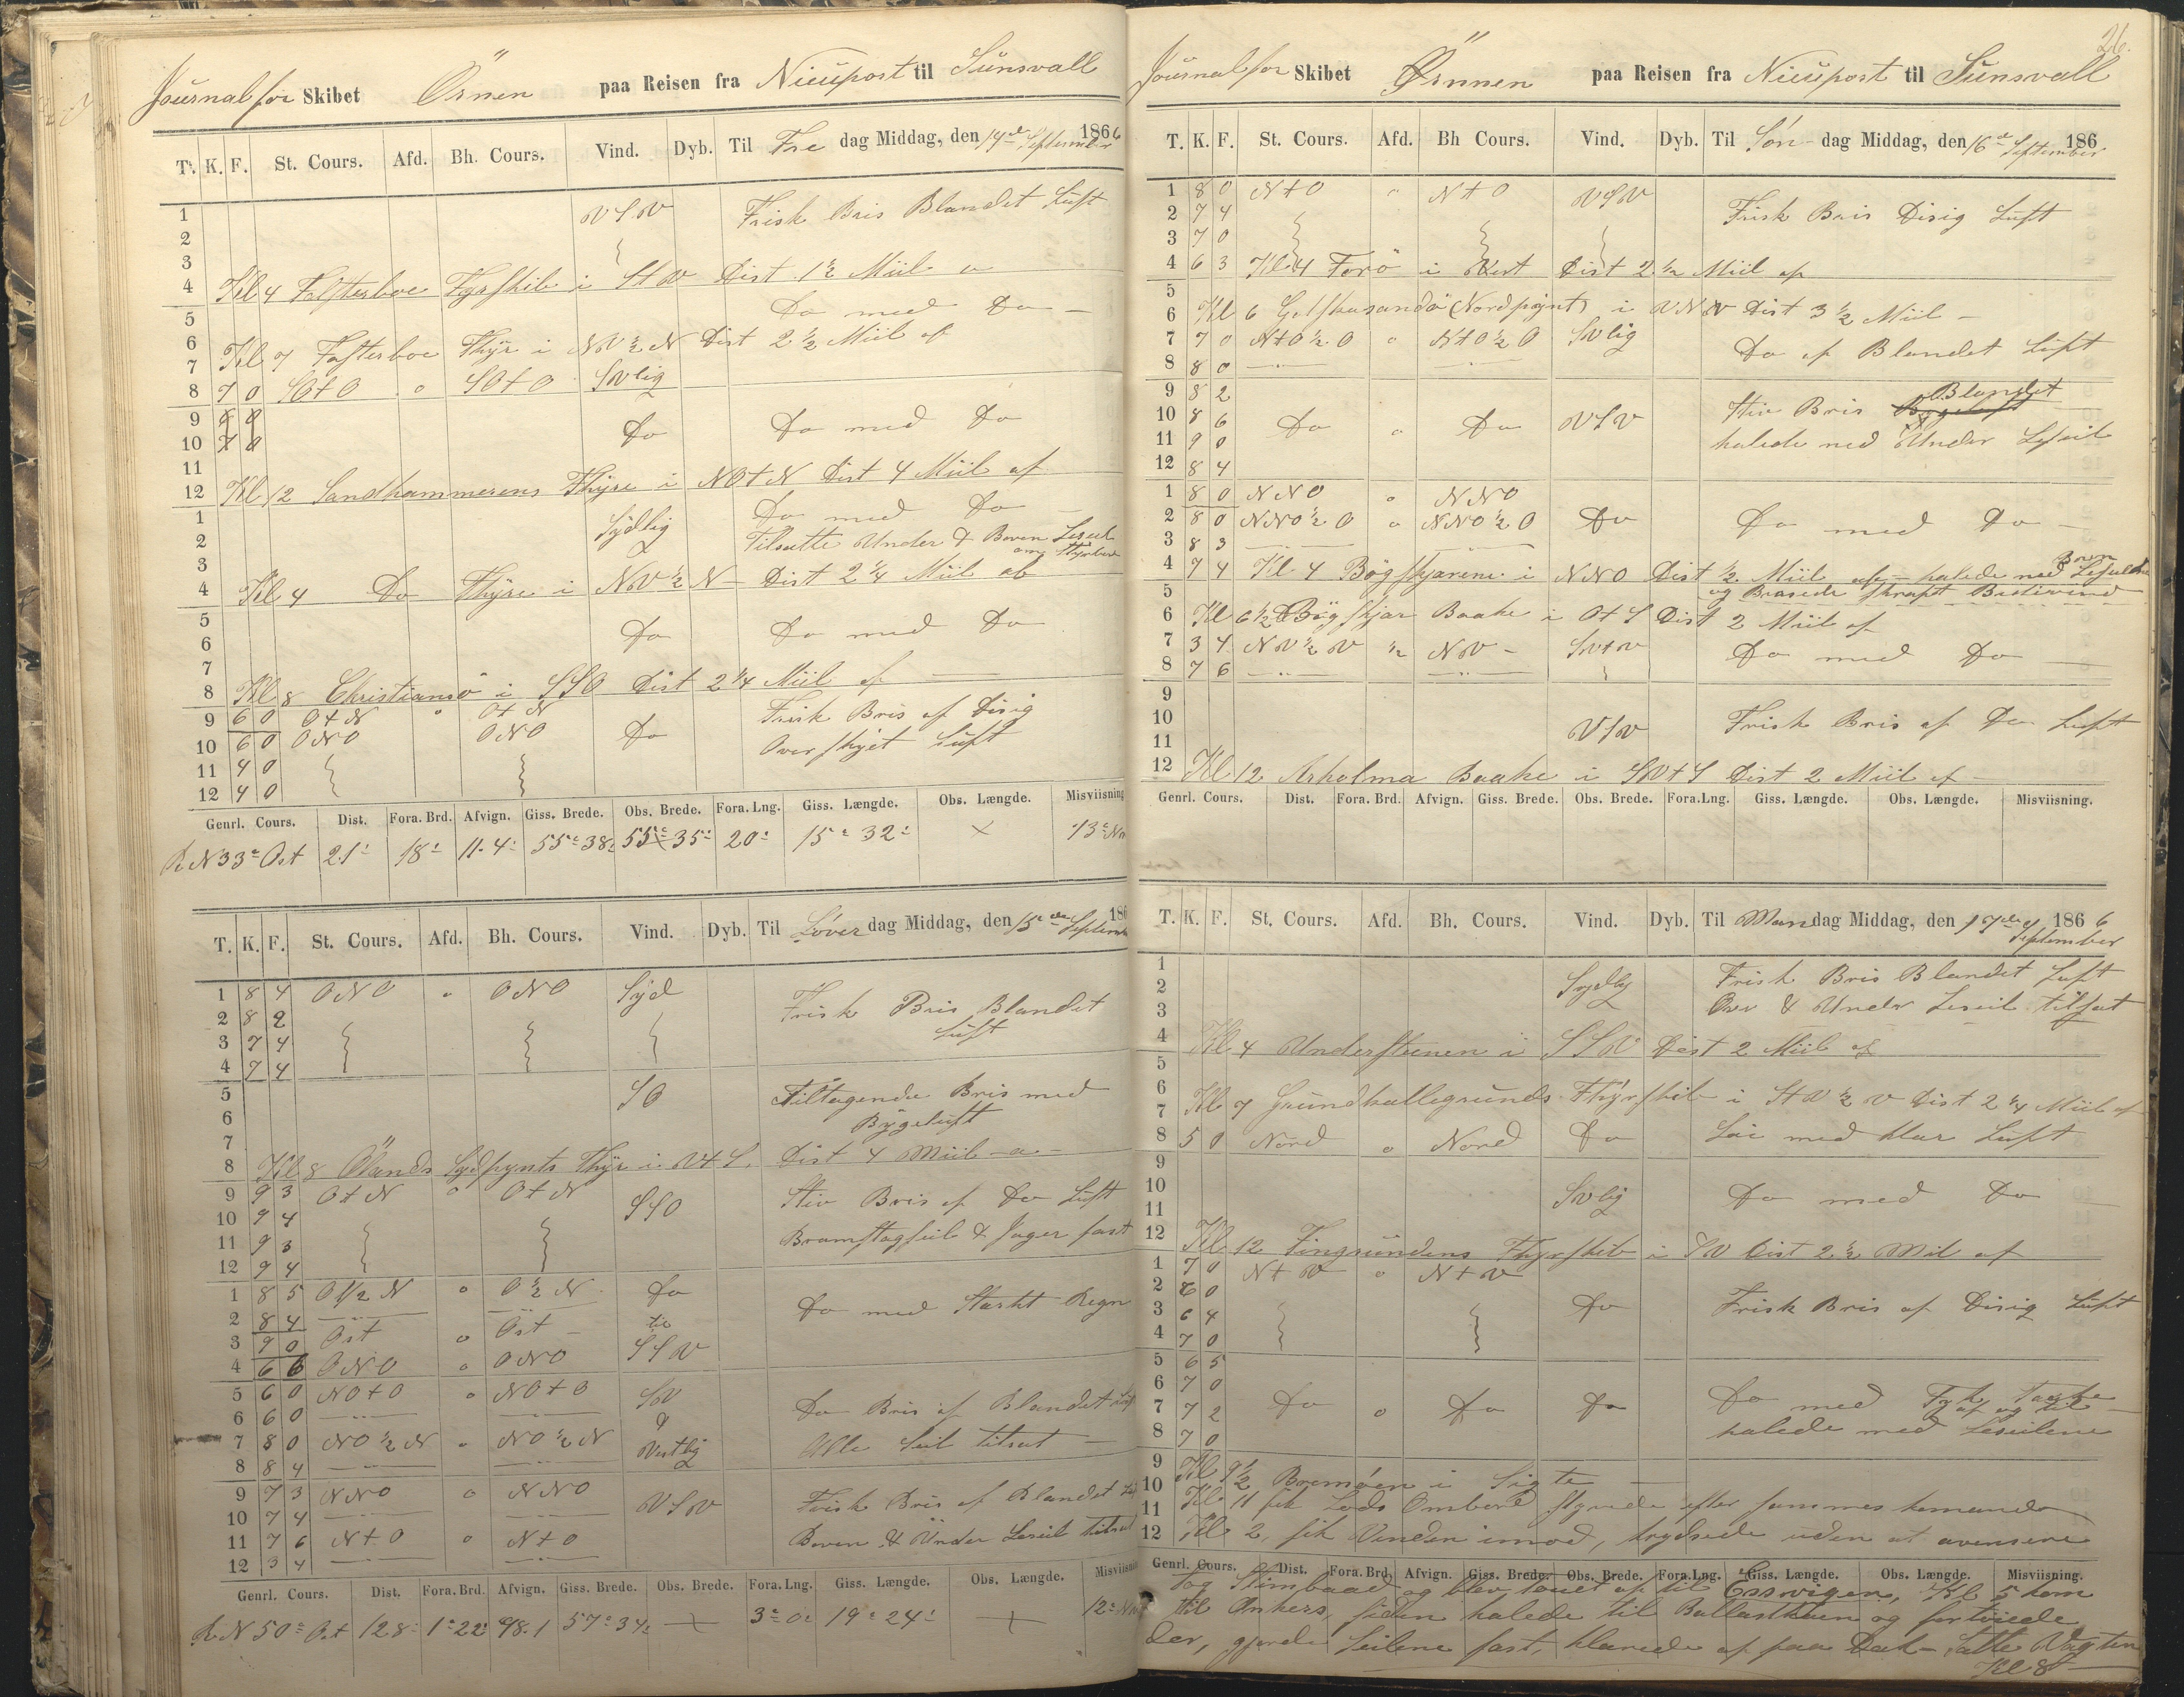 Journal for Skibet Örnen paa Reisen fra Nieuport til Sunsvall
T. K. F. St. Cours. Afd. Bh. Cours. Vind. Dyb. Til Fre dag Middag, den 14de September 1866
1 VSV Frisk Bris Blandet Luft
2
3
4 Kl 4 Falsterboe Fyrskib i StV Dist 1½ Miil a
5 Do med Do
6
7 Kl 7 Falsterboe Fhÿr i NV½N Dist 2½ Miil af
8 7 0 SOtO o SOtO SVlig
9 8 0 Do Do med Do
10 7 0
11
12 Kl 12 Sandhammerens Fhÿre i NOtN Dist 4 Miil af
1 Sÿdlig Do med Do
2 Tilsatte Under & Boven Leseil om Styrbord
3
4 Kl 4 Do Fhÿre i NV½N Dist 2¼ Miil ab
5
6 Do Do med Do
7
8 Kl 8 Christiansö i SSO Dist 2¼ Miil af
9 6 0 OtN o OtN Frisk Bris af Disig
10 6 0 ONO ONO Do Overskÿet Luft
11 4 0
12 4 0
Genrl. Cours. Dist. Fora. Brd. Afvign. Giss. Brede. Obs. Brede. Fora. Lng. Giss. Længde. Obs. Længde. Misviisning
R N 33° Ost 21' 18' 11.4' 55° 38' 55° 35' 20' 15° 32' × 13° NV
T. K. F. St. Cours. Afd. Bh. Cours. Vind. Dyb. Til Löver dag Middag, den 15de September 186
1 8 4 ONO o ONO Sÿd Frisk Bris Blandet
2 8 2 Luft
3 7 4
4 7 4
5 SO Tiltagende Bris med
6 Bÿgeluft
7
8 Kl 8 Ölands Sÿdpynts Fhÿr i VtS. Dist 4 Miil a
9 9 3 OtN o OtN SSO Stiv Bris af Do Luft
10 9 4
11 9 3 Bramstagseil & Jager fast
12 9 4
1 8 5 O½N o O½N Do Do med Starkt Regn
2 8 4 til
3 9 0 Ost o Ost SSV
4 6 6 ONO o ONO
5 6 0 NOtO o NOtO SV Do Bris af Blandet
6 6 0
7 8 0 NO½N o NO½N Vestlig Alle Seil tilsat
8 8 4
9 7 3 NNO o NNO VSV Frisk Bris af Blandet
10 7 4
11 7 6 NtO o NtO Boven & Under Leseil tilsat
12 3 4
Genrl. Cours. Dist. Fora. Brd. Afvign. Giss. Brede. Obs. Brede. Fora. Lng. Giss. Længde. Obs. Længde. Misviisnin
R N 50° Ost 128' 1° 22' 98.1 57° 34' 3° 0' 19° 24' 12°
26.
Journal for Skibet Örnnen paa Reisen fra Nieuport til Sunsvall
T. K. F. St. Cours. Afd. Bh Cours. Vind. Dyb. Til Søn dag Middag, den 16de September 186
1 8 0 NtO o NtO VSV
2 7 4 Frisk Bris Disig Luft
3 7 0
4 6 3 Kl 4 Forö i Vest Dist 2½ Miil af
5
6 Kl 6 Gotskasandö (Nordpÿnt) i VNV Dist 3½ Miil
7 7 0 NtO½O o NtO½O SVlig Do af Blandet Luft
8 8 0
9 8 2 Stiv Bris Blandet
10 8 6 Do o Do VSV
11 9 0 halede ned Under Leseil
12 8 4
1 8 0 NNO o NNO
2 8 0 NNO½O o NNO½O Do Do med Do
3 8 3
4 7 4 Kl 4 Bögskjærene i NNO Dist ½ Miil af halede ned Boven Leseilene
5 og Brasede skrapt Bidevind
6 Kl 6½ Bögskjær Baake i OtS Dist 2 Miil af
7 3 4 NV½V ½ NV SVtV Do med Do
8 7 6
9
10 VSV Frisk Bris af Do Luft
11
12 Kl 12 Arholma Baake i SVtS Dist 2 Miil af
Genrl. Cours. Dist. Fora. Brd. Afvign. Giss. Brede. Obs. Brede. Fora. Lng. Giss. Længde. Obs. Længde. Misviisning.
T. K. F. St. Cours. Afd. Bh. Cours. Vind. Dyb. Til Mandag Middag, den 17de September 1866
1 Sydlig Frisk Bris Blandet Luft
2 Over & Under Leseil tilsat
3
4 Kl 4 Understeenen i SSV Dist 2 Miil af
5
6
7 Kl 7 Grundkallegrunds Fhÿrskib i StV½V Dist 2¼ Miil af
8 5 0 Nord o Nord Do Löi med klar Luft
9
10 SVlig Do med Do
11
12 Kl 12 Fingrundens Fhyrskib i SV Dist 2½ Mil af
1 7 0 NtV o NtV
2 6 0
3 6 4 Do Frisk Bris af Disig Luft
4 7 0
5 6 5
6 7 0 Do med Tyk Taage
7 7 2 Do o Do Do af og til
8 7 0 halede ned Leseilene
9 Kl 9½ Bremöen i Sigte
10
11 Kl 11 fik Lods Ombord styrede efter sammes komando
12 Kl 2 fik Vinden imod, krydsede uden at avensere
Genrl. Cours. Dist. Fora. Brd. Afvign. Giss. Brede. Obs. Brede. Fora. Lng. Giss. Længde. Obs. Længde. Misviisning.
tog Stimbaad og blev touet op til Essvigen, Kl 5 kom
til Ankers, siden halede til Ballastkaien og fortöiede
der, gjorde Seilene fast, klarede op paa Dæk, satte Vagten
Kl 8